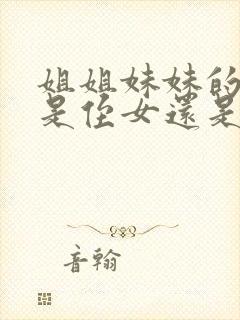 姐姐妹妹的
是侄女還是
音翰